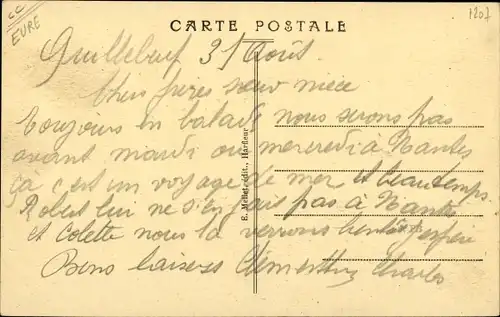 CC
EURE
1207
CARTE POSTALE
Quillebeuf 31 Août
Chers frères soeur nièce
Toujours en balade nous serons pas
avant mardi ou mercredi à Nantes
ça c'est un voyage de mer et beau temps.
Robert lui ne s'en fait pas à Nantes
et Colette nous la verrons bientôt j'espère
Bons baisers Clémentine Charles
E. Mellet, édit., Harfleur